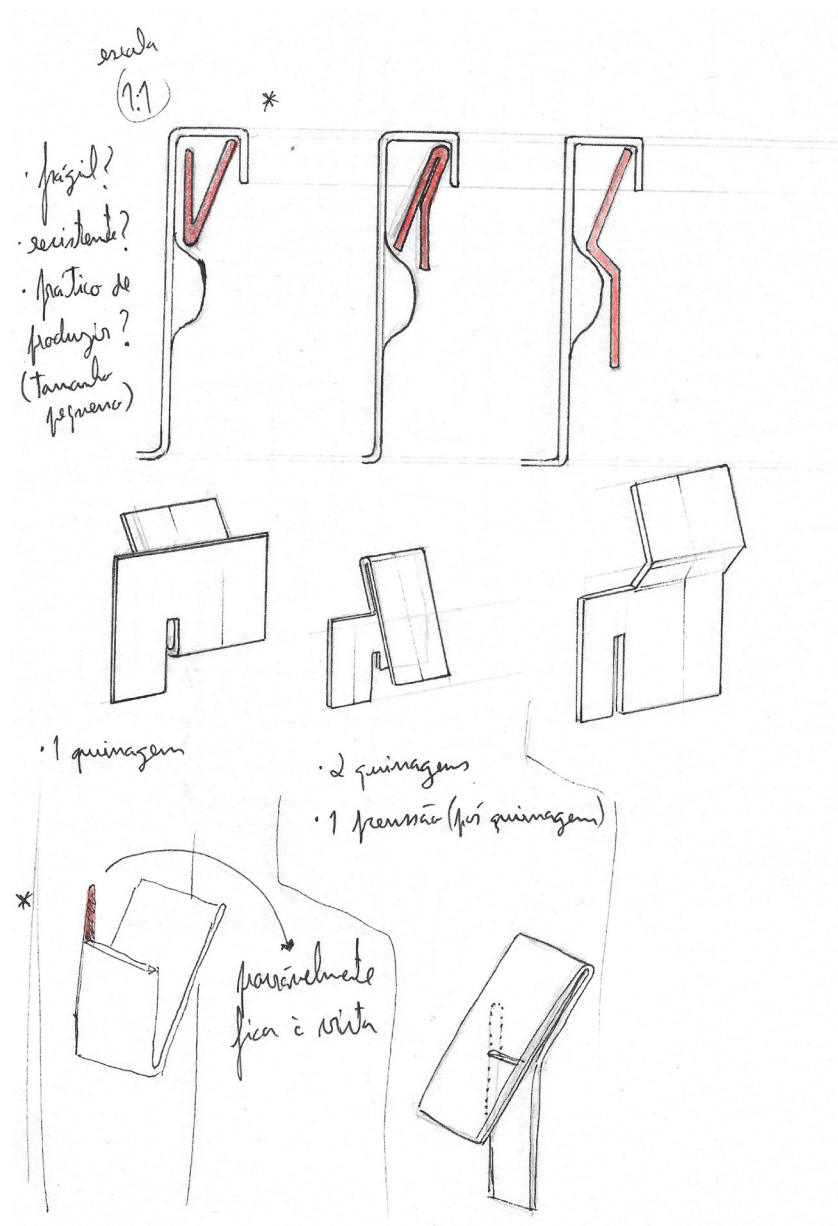 escala
1:1
*
· frágil?
· resistente?
· prático de
produzir?
(tamanho
pequeno)
· 1 quinagem
· 2 quinagens
· 1 pressão (pós quinagem)
*
possivelmente
fica à vista